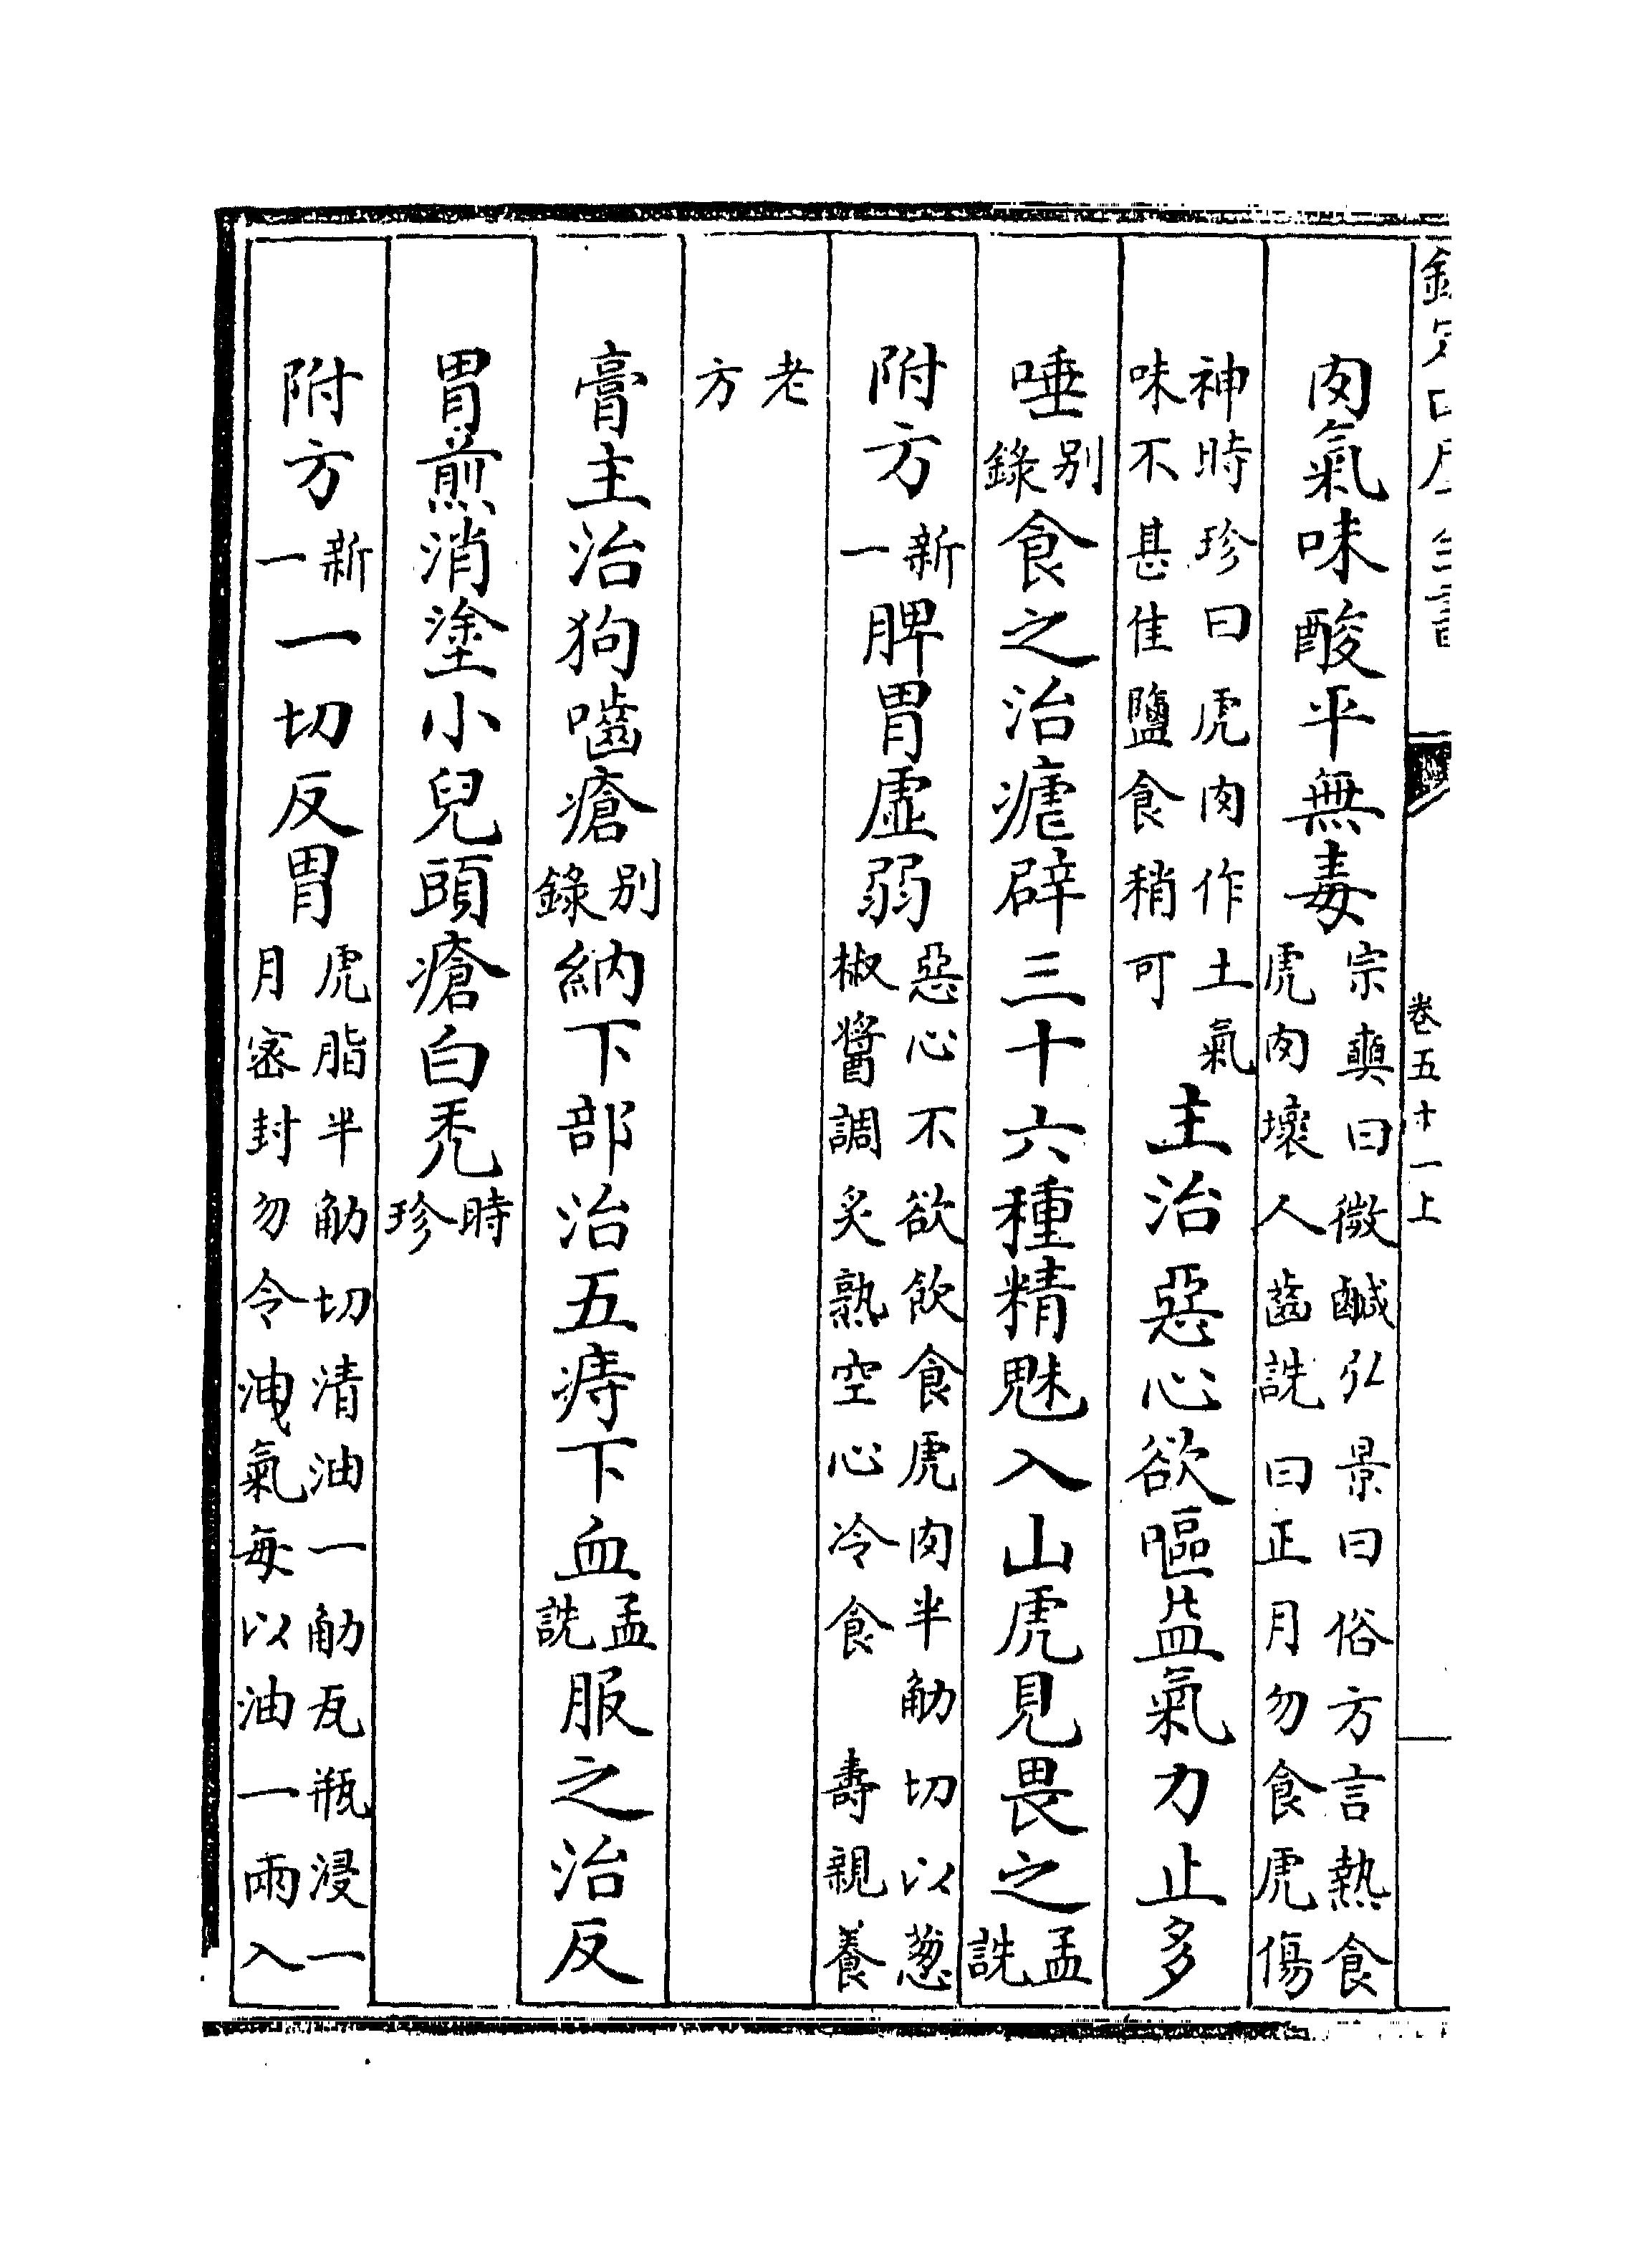 卷五十一上
肉氣味酸平無毒宗奭曰微鹹弘景曰俗方言熱食虎肉壞人齒詵曰正月勿食虎傷
神時珍曰虎肉作土氣味不甚佳鹽食稍可主治惡心欲嘔益氣力止多
唾别錄食之治瘧辟三十六種精魅入山虎見畏之孟詵
附方新一脾胃虛弱惡心不欲飲食虎肉半觔切以葱椒醬調炙熟空心冷食 壽親養
老方
膏主治狗嚙瘡别錄納下部治五痔下血孟詵服之治反
胃煎消塗小兒頭瘡白禿時珍
附方新一一切反胃虎脂半觔切清油一觔瓦瓶浸一月宻封勿令洩氣每以油一兩入